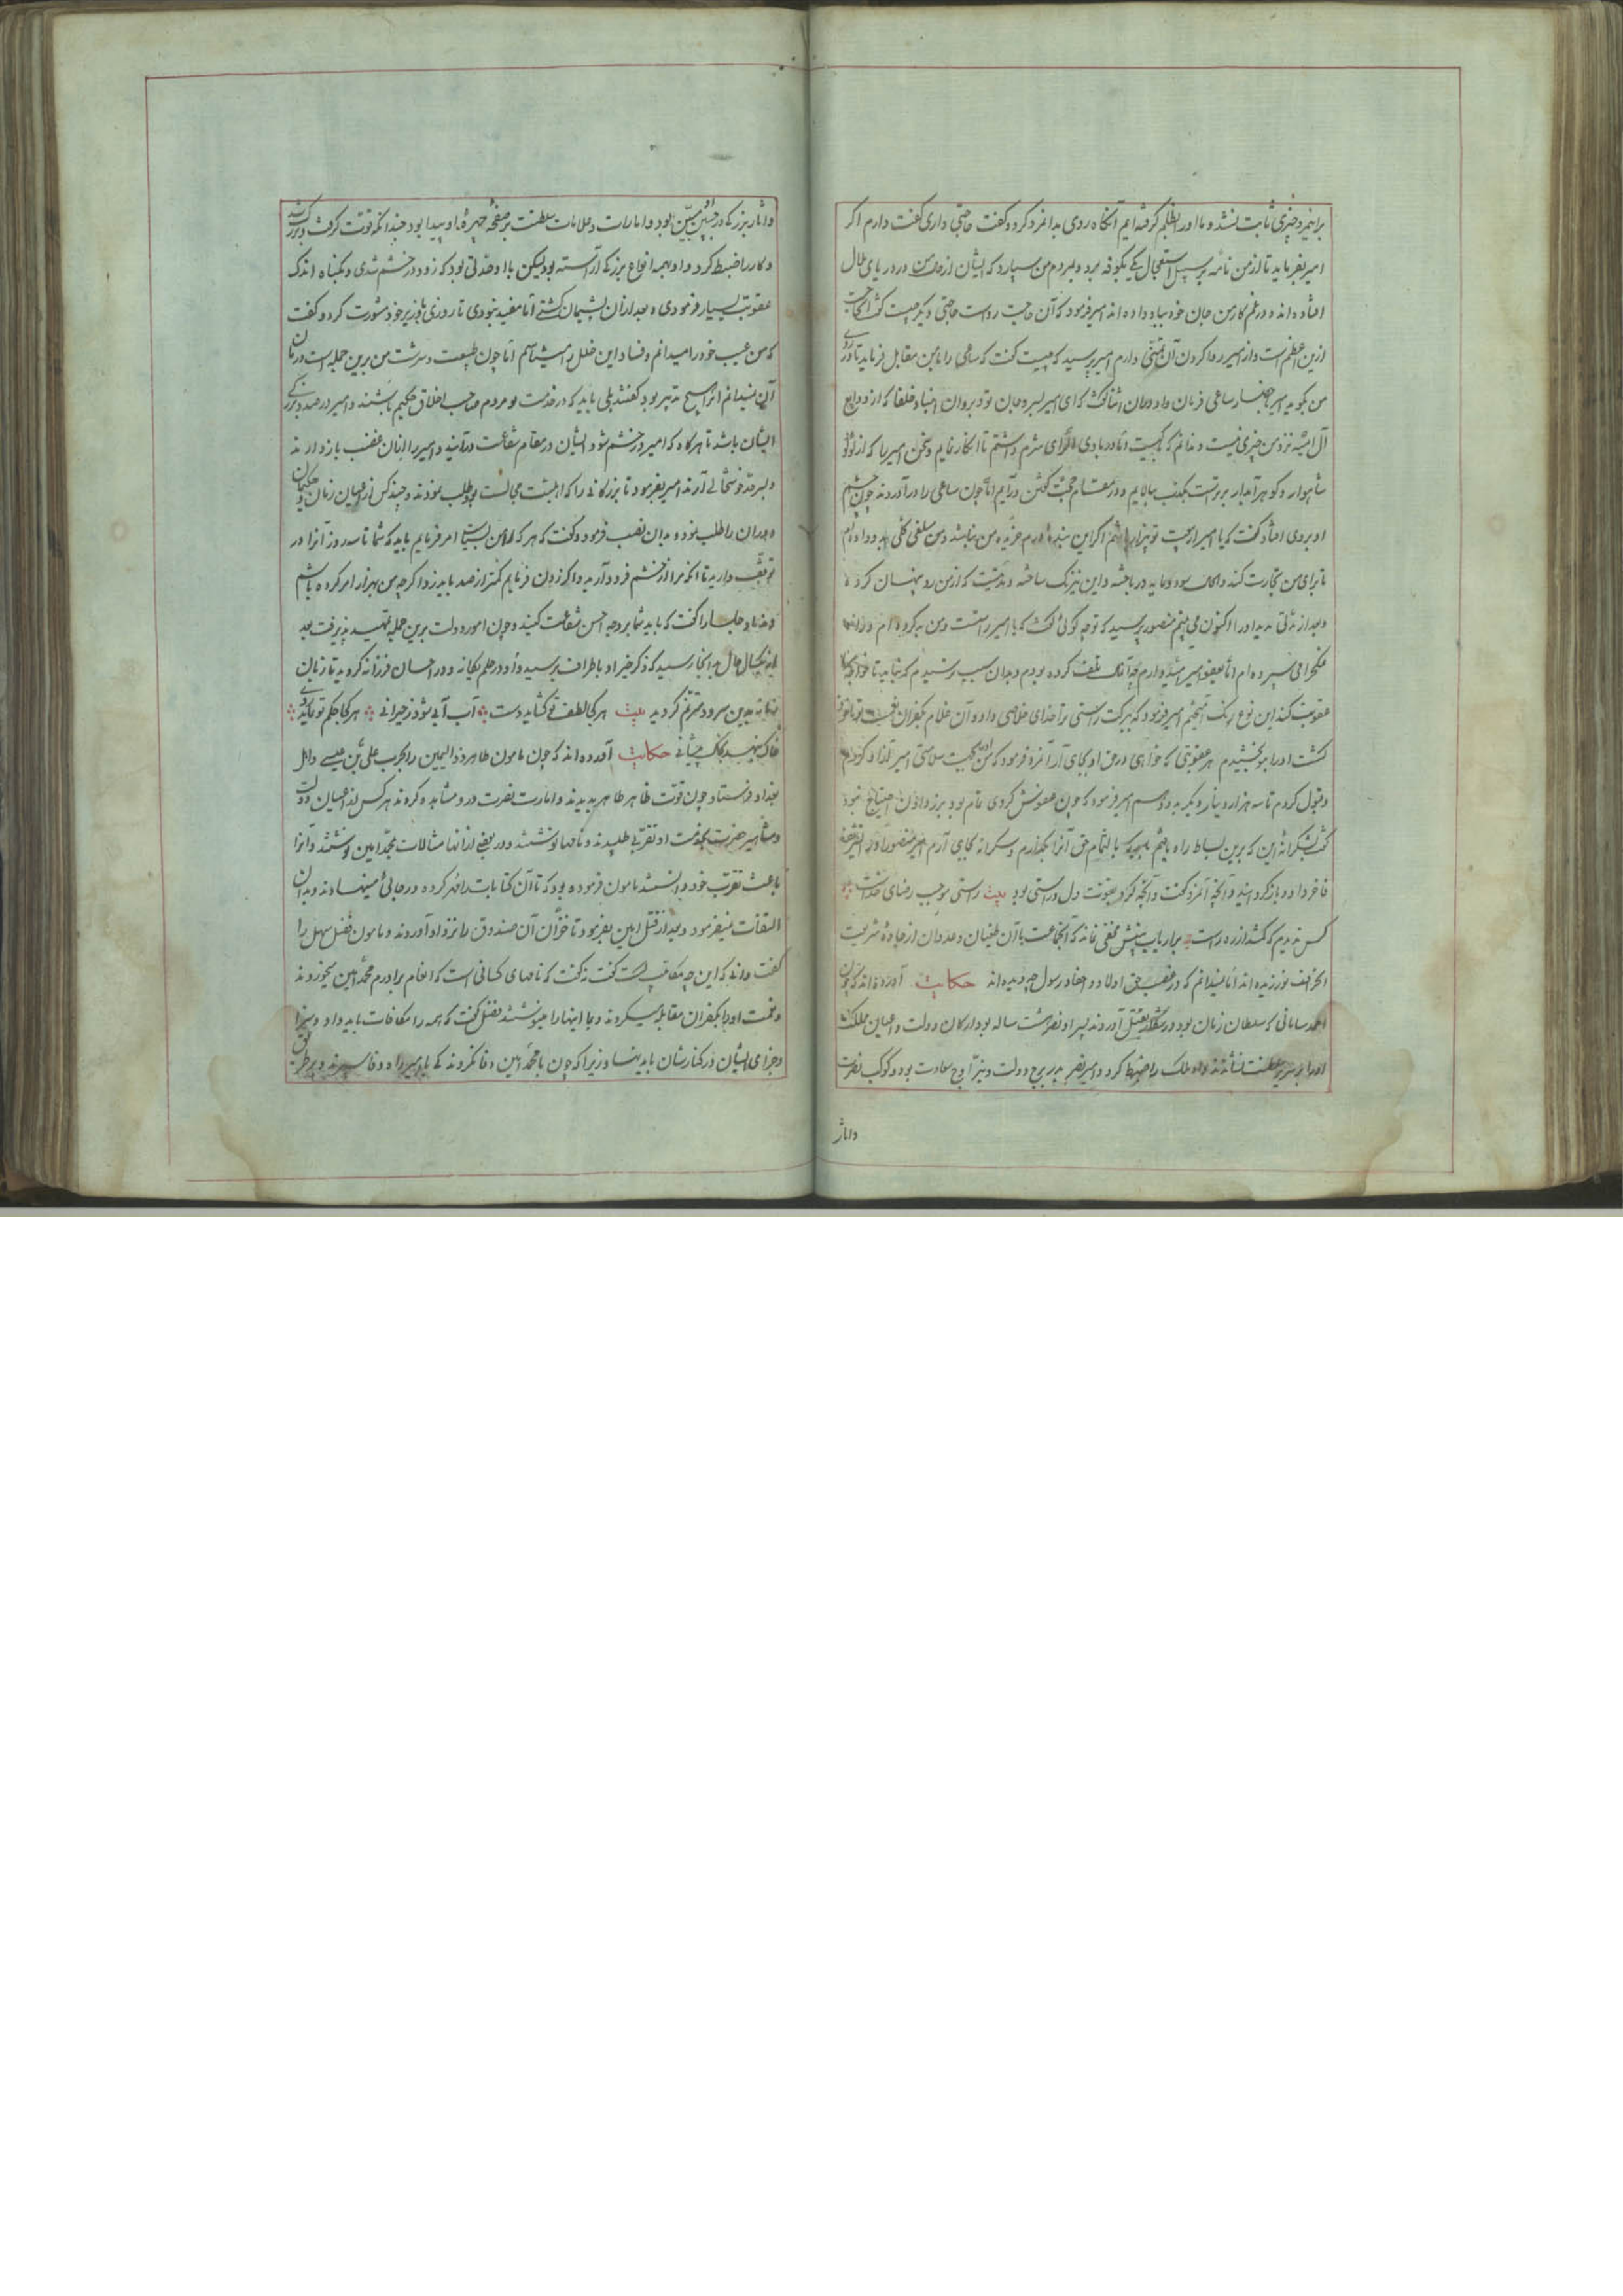 براینمرد چیزی ثابت نشد و ما او را بظلم گرفته ایم آنگاه روی بدانمرد کرد و گفت حاجتی داری گفت دارم اگر
امیر بفرماید تا از من نامه بر سبیل استعجال یکی بکوفه برد و بمردم من سپارد که ایشان از حال من در دریای ملال
افتاده اند و در غم کار من جان خود بباد داده اند امیر فرمود که آن حاجت رواست حاجتی دیگر چیست گفت آنحاجت
ازین اعظم است و از امیر روا کردن آن تمنی دارم امیر پرسید که چیست گفت که ساعی را با من مقابل فرماید تا در روی
من بگوید امیر باحضار ساعی فرمان داد و آن گفت که ای امیر بسر و جان تو و بروان انبیا و خلفا که از ودایع
آل امیه نزد من چیزی نیست و ندانم که کیست اما در بادی الرأی شرم داشتم تا انکار نمایم و سخن امیر را که از لؤلؤ
شاهوار و گوهر آبدار برترست بکذب بیالایم و در مقام حجت گفتن درآیم اما چون ساعی را درآوردند چون چشم
او بروی افتاد گفت که یا امیر از بیعت تو بیزار باشم اگر این بنده درم خریده من نباشد و من مبلغی کلی بدو داده ام
تا برای من تجارت کند در باخته و این نیرنگ ساخته و مدتیست که از من رو پنهان کرده
و بعد از مدتی مدید او را اکنون می بینم منصور پرسید که تو چه گوئی گفت که یا امیر راستست و من بد کرده ام
اما بعفو امیر امید دارم چه آنمال تلف کرده بودم و بدان سبب ترسیدم که نباید تا خواجه مرا
عقوبت کند این نوع رنگ آمیختم امیر فرمود که ببرکت راستی ترا خدای خلاصی داد و آن غلام بکفران نعمت تو ماخوذ
گشت او را بتو بخشیدم هر عقوبتی که خواهی در حق او بجای آر آنمرد فرمود که من او را بجهت سلامتی امیر آزاد کردم
و قبول کردم تا سه هزار دینار دیگر بدو دهم امیر فرمود که چون عفوش کردی تمام بود بزر دادن احتیاج نبود
گفت بشکرانه این که برین بساط راه یافتم حق آنرا بگذارم و شکرانه بجای آرم امیر منصور او را تشریف
فاخر داد و باز گردانید و آنچه آنمرد گفت و آنچه کرد بقوت دل و راستی بود بیت راستی موجب رضای خداست
کس ندیدم که گمشد از ره راست بر ارباب بینش مخفی نماند که آنجماعت با آن طغیان و عدوان از جاده شریعت
انحراف نورزیده اند اما نمیدانم که در غصب حق اولاد و احفاد رسول چه دیده اند حکایت آورده اند که چون
احمد سامانی که سلطان زمان بود در شکار بقتل آوردند پسر او نصر هشت ساله بود ارکان دولت و اعیان مملکت
او را بر سریر سلطنت نشاندند و او ملک را ضبط کرد و امیر نصر بدر برج دولت و نیر اوج سعادت بود و کوکب نصرت
و اثار
و اثار بزرگی در جبین او مبین بود و امارات و علامات سلطنت بر صفحه چهره او پیدا بود چندانکه قوت گرفت و بزرگ شد
و کار را ضبط کرد و او بهمه انواع بزرگی آراسته بود لیکن با او حدتی بود که زود در خشم شدی و بگناه اندک
عقوبت بسیار فرمودی و بعد از آن پشیمان گشتی اما مفید نبودی تا روزی با وزیر خود مشورت کرد و گفت
که من عیب خود را میدانم و فساد این خلل را میشناسم اما چون طبیعت و سرشت من برین جمله است درمان
آن نمیدانم آنرا هیچ تدبیر بود گفتند بلی باید که در خدمت تو مردم صاحب اخلاق حکیم باشند و امیر در صدد بزرگی
ایشان باشد تا هرگاه که امیر در خشم شود ایشان در مقام شفاعت درآیند و امیر را از آن غضب باز دارند
و بسر حد خوشحالی آرند امیر بفرمود تا بزرگانی را که اهلیت مجالست بود طلب نمودند و چند کس از اعیان زمان و حکیمان
دوران را طلب نمود و بدان نصب فرمود و گفت که هر که را من بسیاست امر فرمایم باید که شما تا سه روز آنرا در
توقف دارید تا آنکه مرا از خشم فرود آرید و اگر زدن فرمایم کمتر از صد باید زد اگر چه من بهزار امر کرده باشم
و ندما و جلسا را گفت که باید شما بر وجه احسن شفاعت کنید و چون امور دولت برین جمله تمهید پذیرفت بعد
از یکسال حال بدانجا رسید که ذکر خیر او باطراف برسید و او در حلم یگانه و در احسان فرزانه گردید تا زبان
زمانه بدین سرود مترنم گردید بیت هر کجا لطف تو گشاید دست آب آبی شود ز حیرانی هر کجا حکم تو نماید روی
خاک بنهد بخاک پیشانی حکایت آورده اند که چون مامون طاهر ذو الیمینین را بحرب علی بن عیسی و اهل
بغداد فرستاد چون قوت ظاهر طاهر بدیدند و امارت نصرت در و مشاهده کردند هر کس از اعیان دولت
و مشاهیر حضرت بخدمت او تقربی طلبیدند و نامها نوشتند و در بعضی از آنها مثالب محمد امین نوشتند و آنرا
باعث تقرب خود دانستند مامون فرموده بود که تا آن کتابات را مهر کرده در جائی مینهادند و بدان
التفات نمیفرمود و بعد از قتل امین بفرمود تا خزان آن صندوق را نزد او آوردند و مامون فضل سهل را
گفت دانی که این چه مکاتیب است گفت نه گفت که نامهای کسانی است که انعام برادرم محمد امین میخوردند
و نعمت او را بکفران مقابله میکردند و بما اینها را مینوشتند فضل گفت که همه را مکافات باید داد و سزا
و جزای ایشان در کنارشان باید نهاد زیرا که چون با محمد امین وفا نکردند کی با امیر راه وفا سپرند و بر طریق